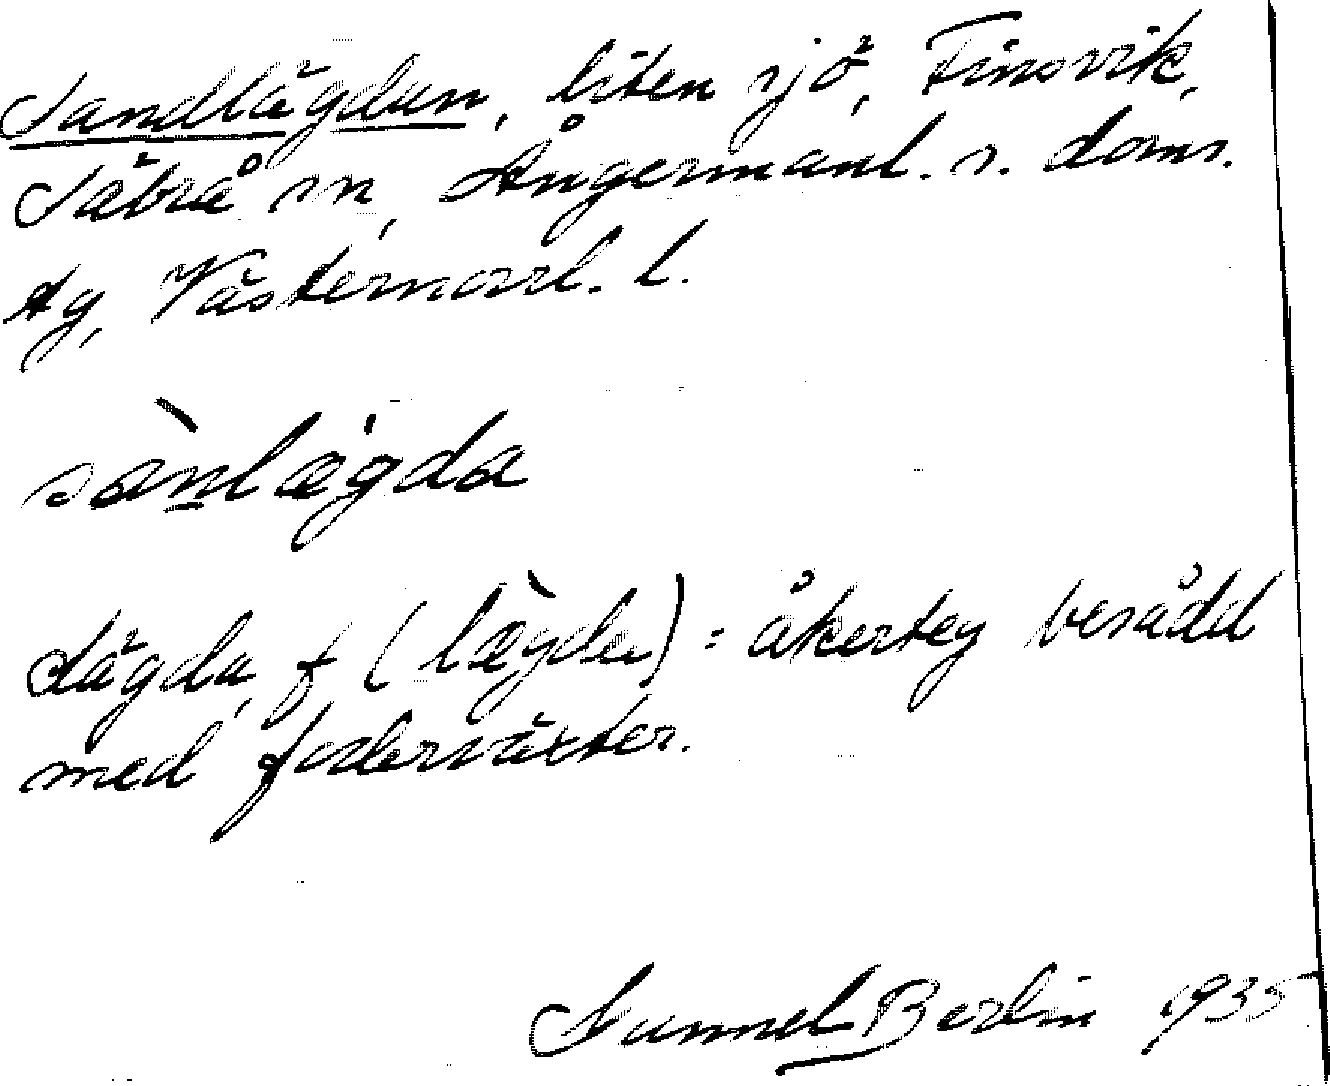 Sandlägdan, liten sjö, Finsvik,
Säbrå sn, Ångermanl. s. doms.
tg, Västernorrl. l.
sànlǽgda
Lägda, f (lægda) = åkerteg besådd
med foderväxter.
Gunnel Berlin 1935